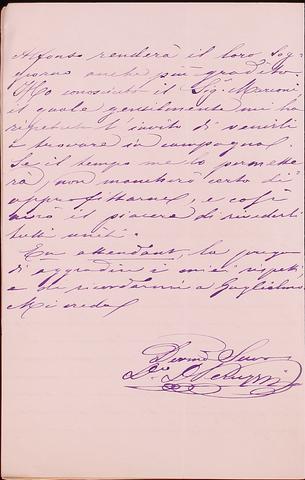 Alfonso renderà il loro sog-
giorno anche più gradito.
Ho conosciuto il Sig. Marconi,
il quale gentilmente mi ha
ripetuto l'invito di venirli
a trovare in campagna.
Se il tempo me lo permette
rà, non mancherò certo di
approfittarne, e così
avrò il piacere di rivederli
tutti uniti.
En attendant, la prego
di aggradire i miei rispetti
e di ricordarmi a Guglielmo.
Mi creda
Devmo Servo